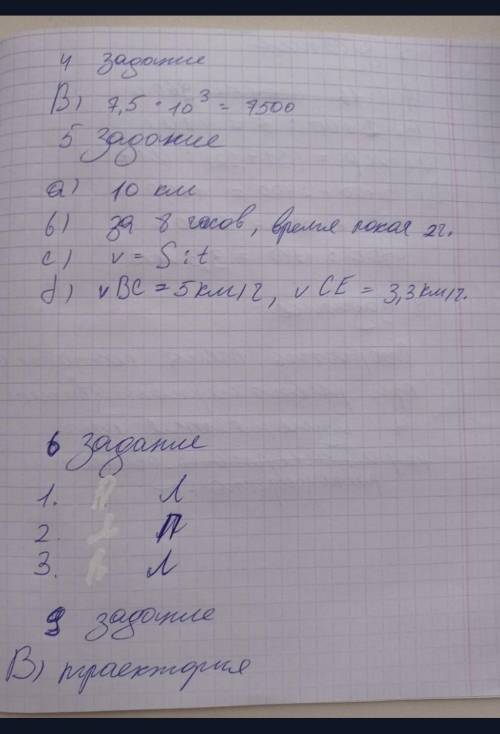 4 задание
В) 7,5 · 10³ = 7500
5 задание
а) 10 км
б) за 8 часов, время покоя 2г.
с) v = S : t
d) v BC = 5 км/ч, v CE = 3,3 км/ч.
6 задание
1. Л
2. П
3. Л
9 задание
В) траектория